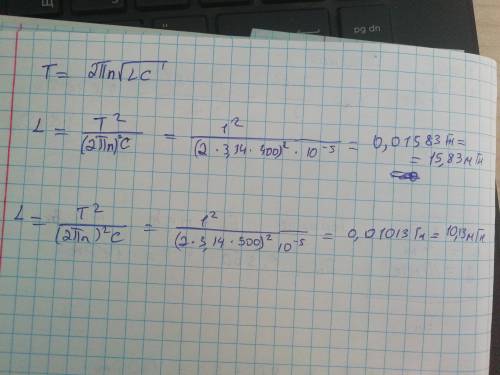 Щ
pg dn
T = 2Пn√LC
L = T²/(2Пn)²C = 1²/(2·3,14·400)²·10⁻⁵ = 0,01583 Гн =
= 15,83 мГн
L = T²/(2Пn)²C = 1²/(2·3,14·500)² 10⁻⁵ = 0,01013 Гн = 10,13 мГн